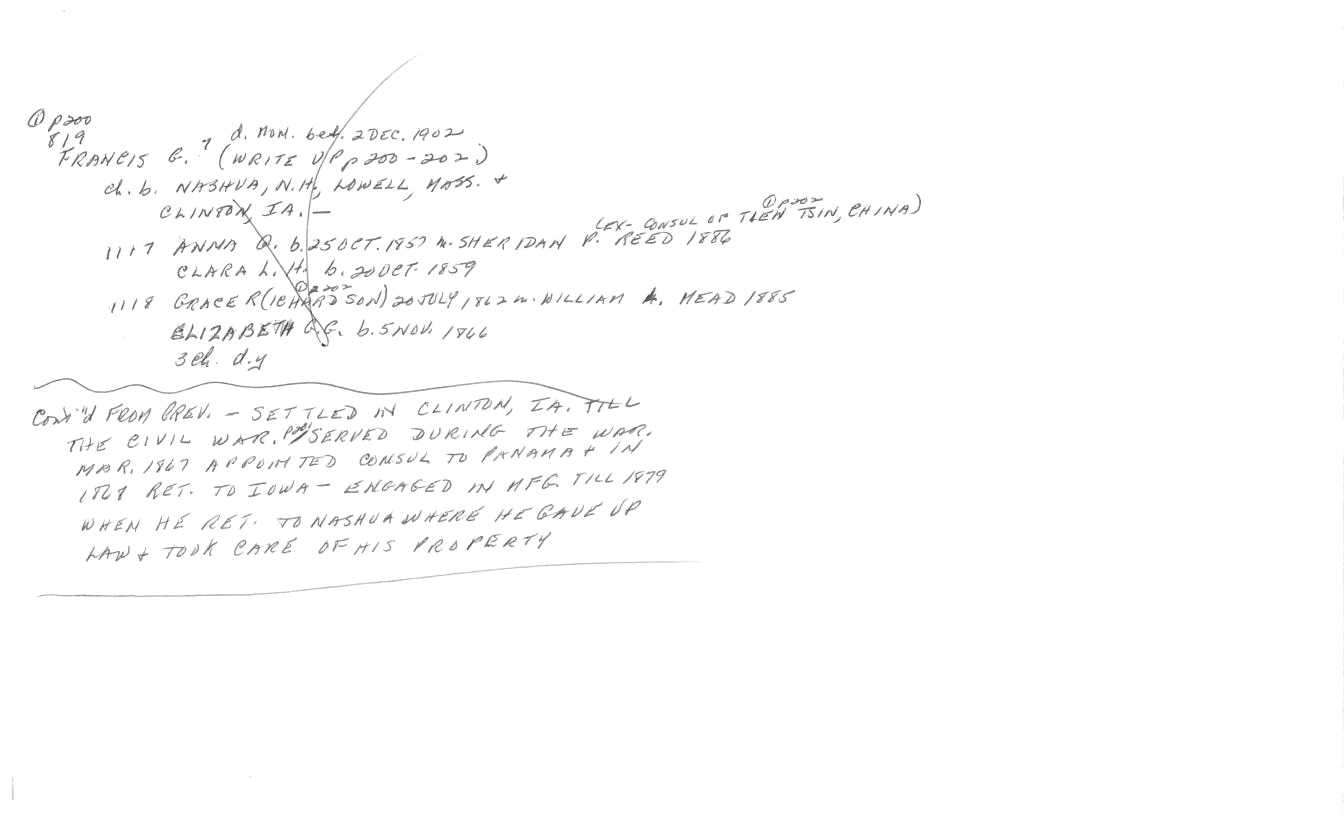 ① p200
819
d. NOM. bef. 2 DEC. 1902
FRANCIS G. 7 (WRITE UP p200-202)
ch. b. NASHUA, N.H., LOWELL, MASS. +
CLINTON, IA. —
① p202
(EX-CONSUL OF TIEN TSIN, CHINA)
1117 ANNA Q. b. 25 OCT. 1857 m. SHERIDAN P. REED 1886
CLARA L. H. b. 20 OCT. 1859
① p202
1118 GRACE R(ICHARDSON) 20 JULY 1862 m. WILLIAM H. MEAD 1885
ELIZABETH G. G. b. 5 NOV. 1866
3 ch. d.y
Cont'd FROM PREV. — SETTLED IN CLINTON, IA. TILL
THE CIVIL WAR. p201/SERVED DURING THE WAR.
MAR. 1867 APPOINTED CONSUL TO PANAMA + IN
1868 RET. TO IOWA — ENGAGED IN MFG. TILL 1879
WHEN HE RET. TO NASHUA WHERE HE GAVE UP
LAW + TOOK CARE OF HIS PROPERTY